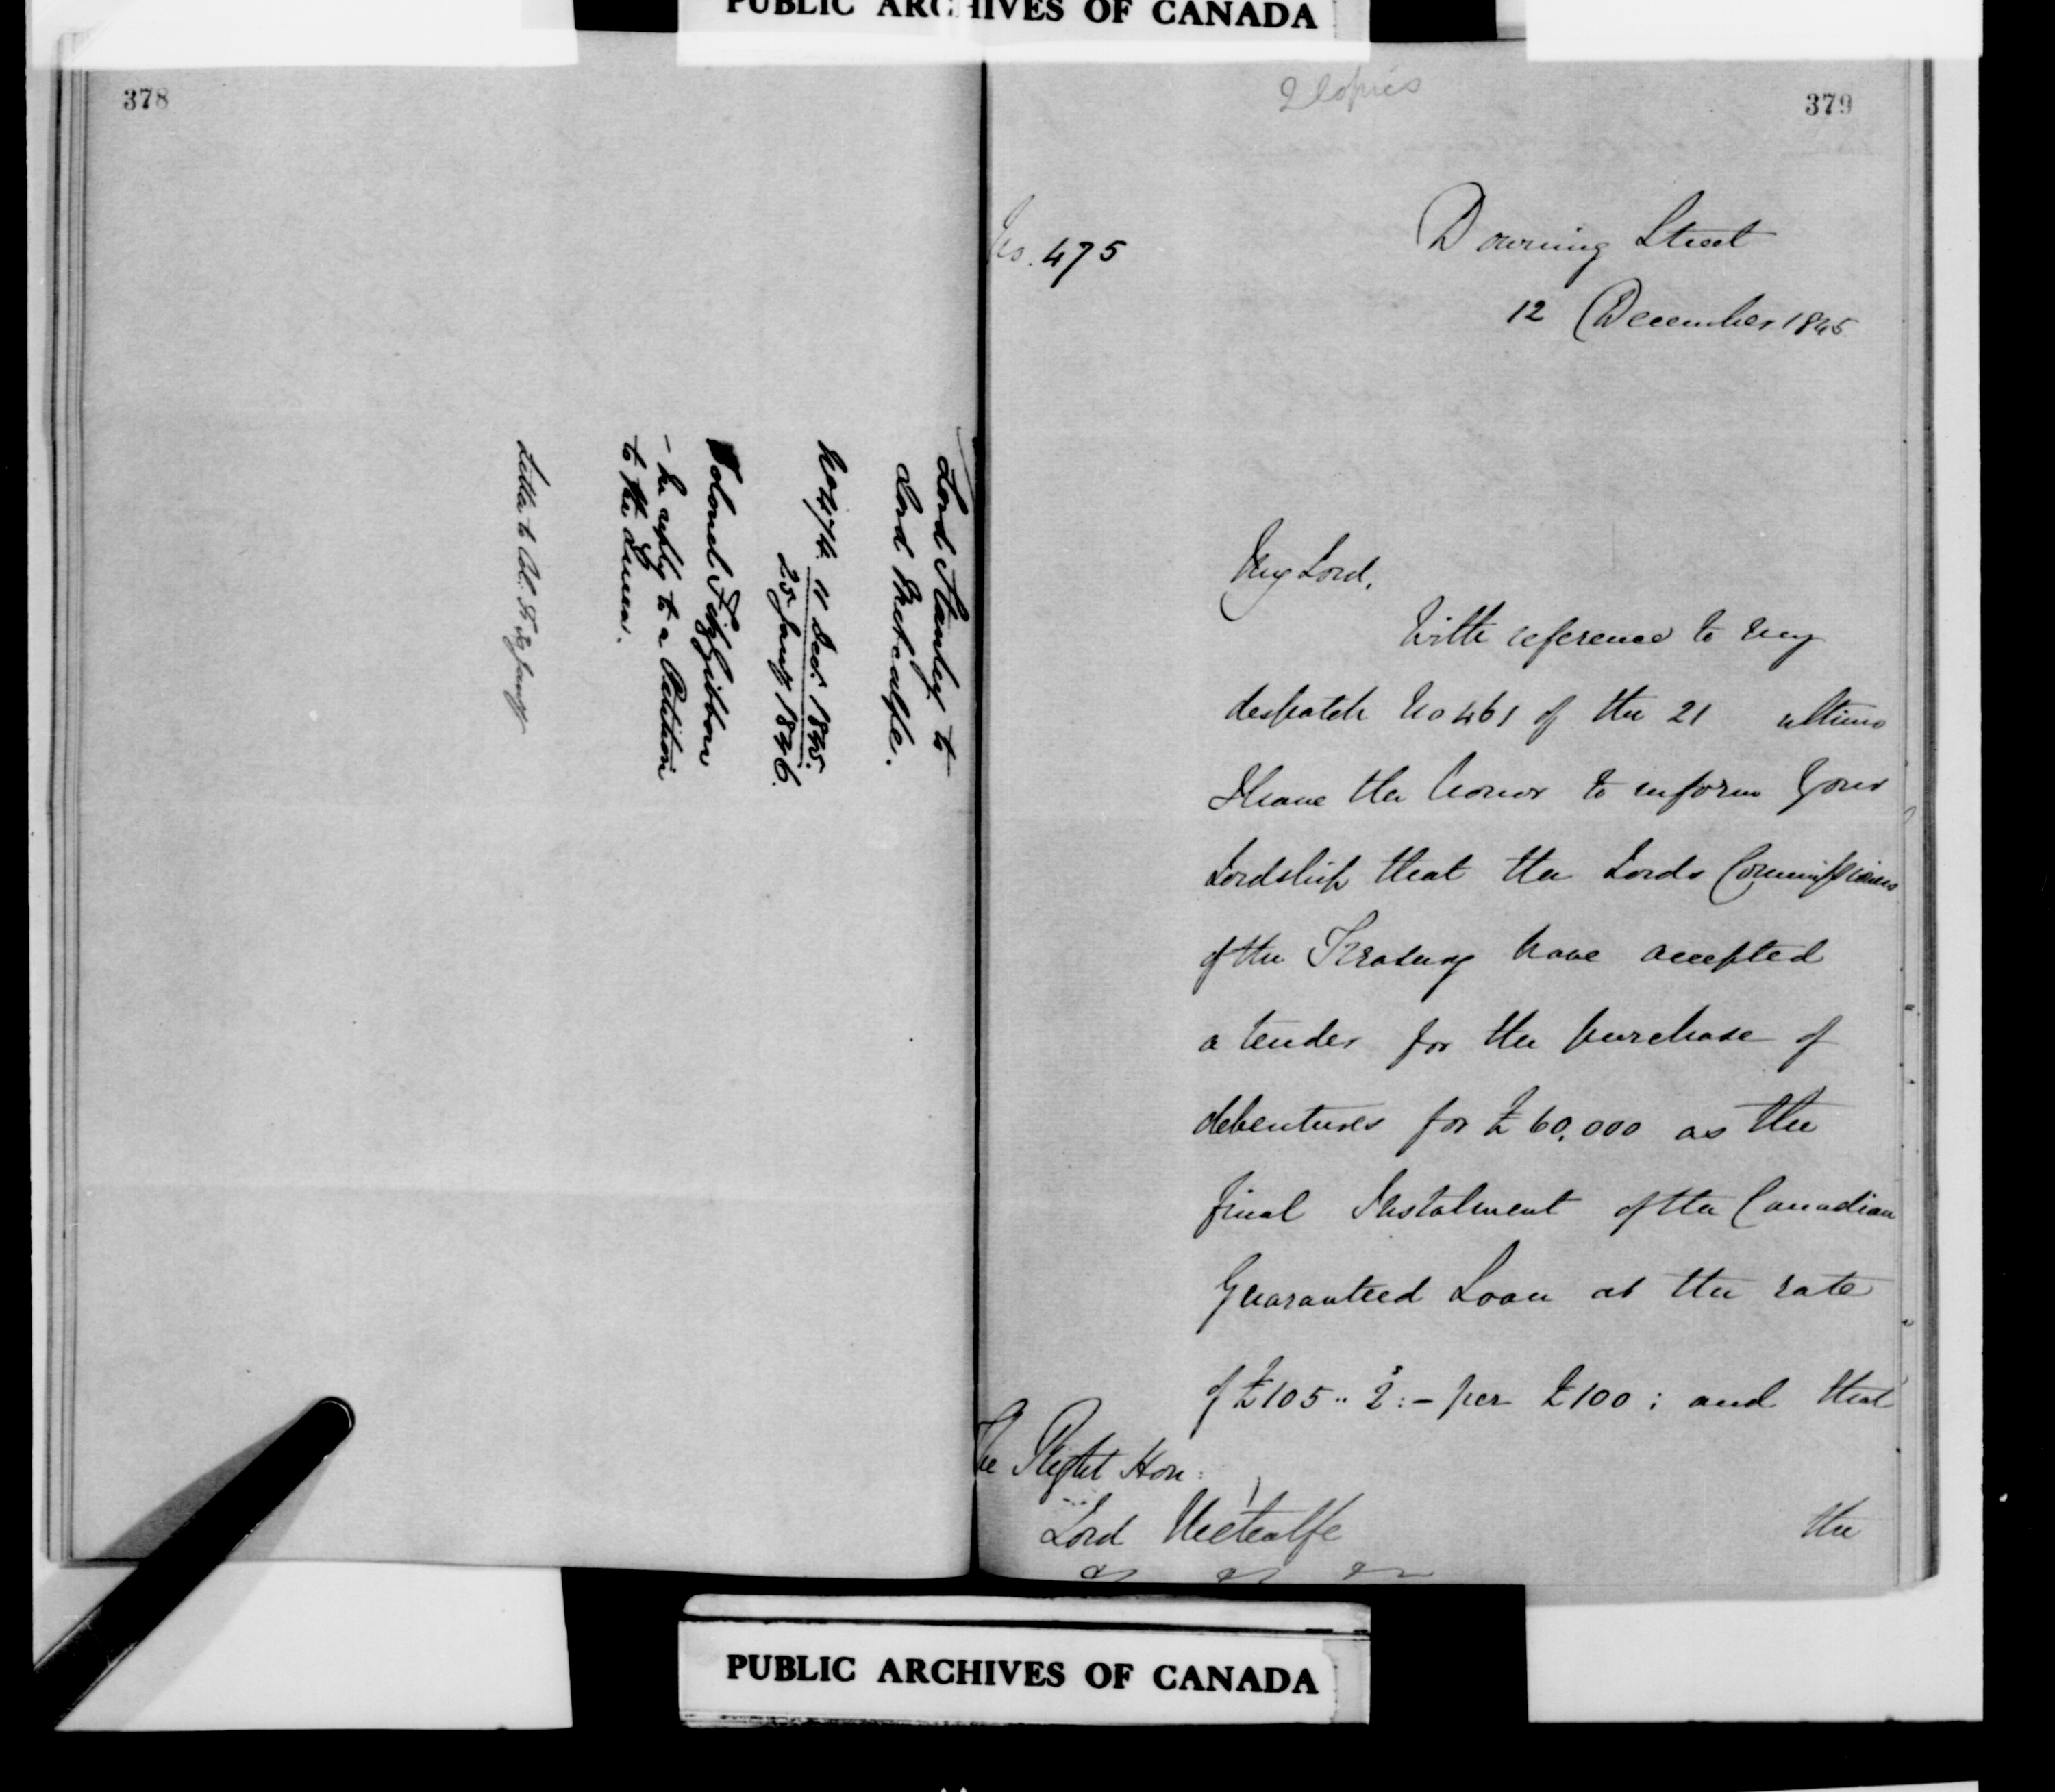 PUBLIC ARCHIVES OF CANADA
378
Lord Stanley to
Lord Metcalfe.
No 474. 11 Decr. 1845.
25 Jany 1846.
Colonel Fitzgibbon
- In reply to a Petition
to the Queen.
Letter to Col. F.
2 Copies
379
No. 475
Downing Street
12 December 1845
My Lord,
With reference to my
despatch No 461 of the 21 ultimo
I have the honor to inform Your
Lordship that the Lords Commissioners
of the Treasury have accepted
a tender for the purchase of
debentures for £60,000 as the
final Instalment of the Canadian
Guaranteed Loan at the rate
of £105 .. 2s : - per £100 ; and that
The Right Hon:
Lord Metcalfe
the
PUBLIC ARCHIVES OF CANADA